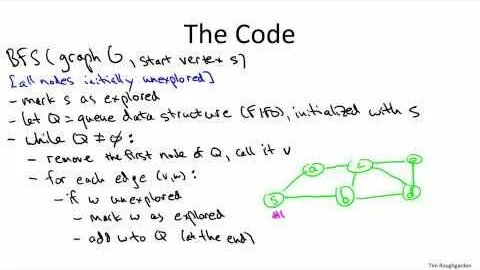 The Code
BFS (graph G, start vertex s)
[all nodes initially unexplored]
- mark s as explored
- let Q = queue data structure (FIFO), initialized with s
- while Q ≠ ∅ :
- remove the first node of Q, call it v
- for each edge (v,w) :
- if w unexplored
- mark w as explored
- add w to Q (at the end)
a
c
e
s
b
d
#1
Tim Roughgarden